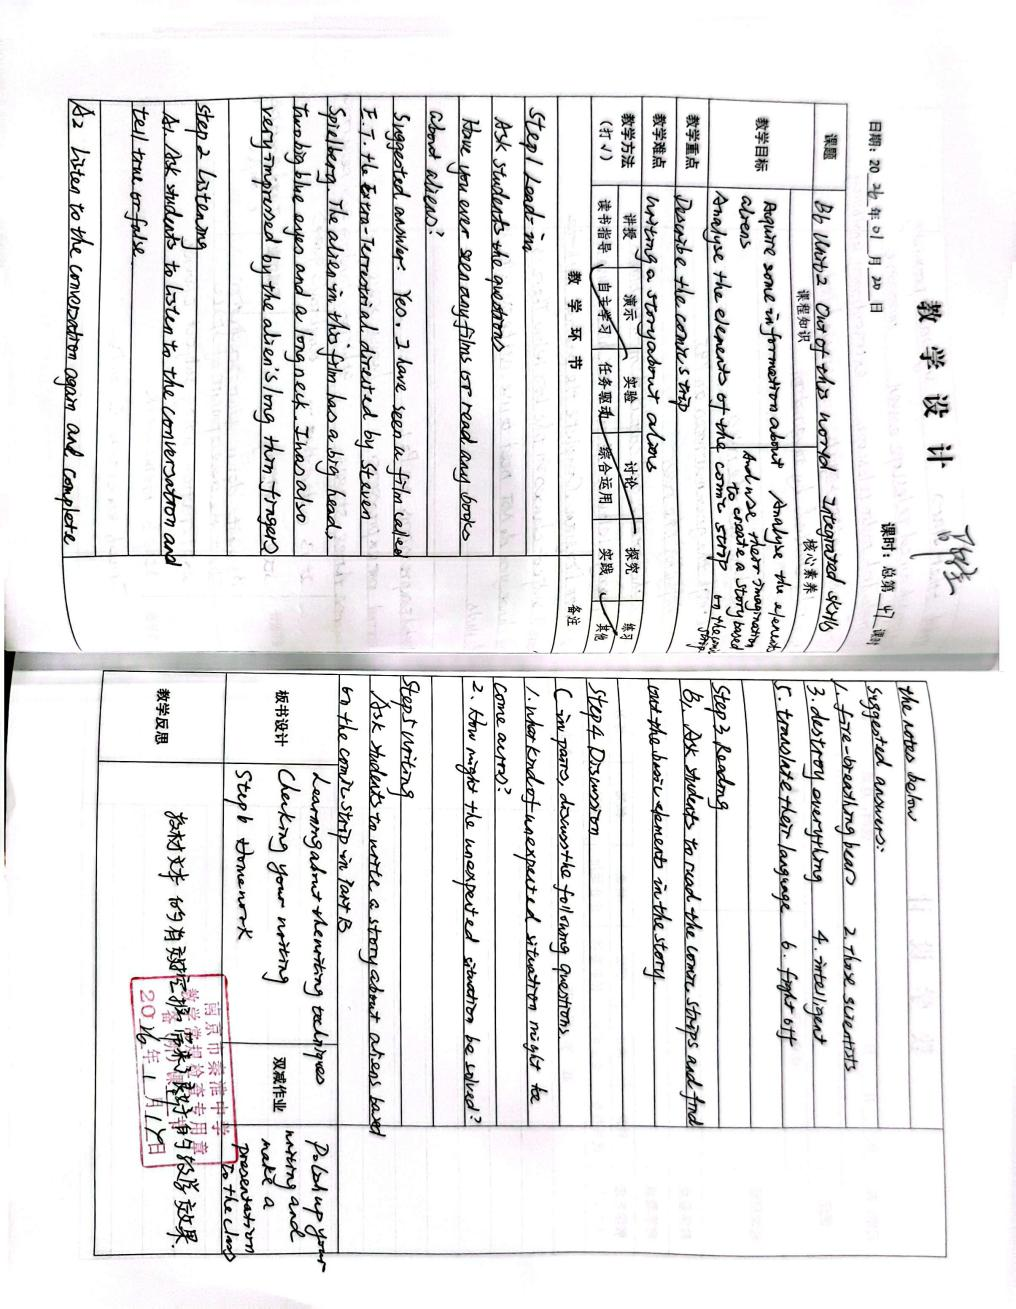 教学设计
日期: 2026年01月20日
课时: 总第47课时
课题
B6 Unit2 Out of this world Integrated skills
课程知识
核心素养
教学目标
Acquire some information about
aliens
Analyse the elements of the comic strip
Analyse the elements
And use their imagination
to create a story based
on the comic strip
教学重点
Describe the comic strip
教学难点
Writing a story about aliens
教学方法
(打√)
讲授 演示 实验 讨论 探究 练习
读书指导 自主学习 任务驱动 综合运用 实践 其他
教学环节
备注
Step1 Lead-in
Ask students the questions
Have you ever seen any films or read any books
about aliens?
Suggested answer: Yes. I have seen a film called
E.T. the Extra-Terrestrial directed by Steven
Spielberg. The alien in this film has a big head,
two big blue eyes and a long neck. I was also
very impressed by the alien's long thin fingers
Step 2 Listening
A1. Ask students to listen to the conversation and
tell true or false.
A2 Listen to the conversation again and complete
the notes below
Suggested answers:
1. fire-breathing bears 2. those scientists
3. destroy everything 4. intelligent
5. translate their language 6. fight off
Step 3 Reading
B, Ask students to read the comic strips and find
out the basic elements in the story.
Step 4 Discussion
C in pairs, discuss the following questions.
1. what kind of unexpected situation might be
come across?
2. How might the unexpected situation be solved?
Step5 writing
Ask students to write a story about aliens based
on the comic strip in Part B
板书设计
Learning about the writing techniques
Checking your writing
Step6 Homework
双减作业
Polish up your
writing and
make a
presentation
to the class
教学反思
教材文本的有效挖掘带来了较好的教学效果.
南京市秦淮中学
教学常规检查专用章
2026年1月19日